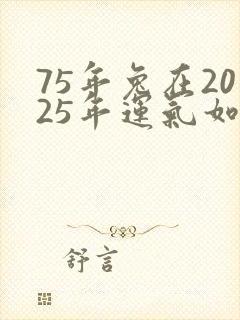 75年兔在20
25年運氣如
舒言